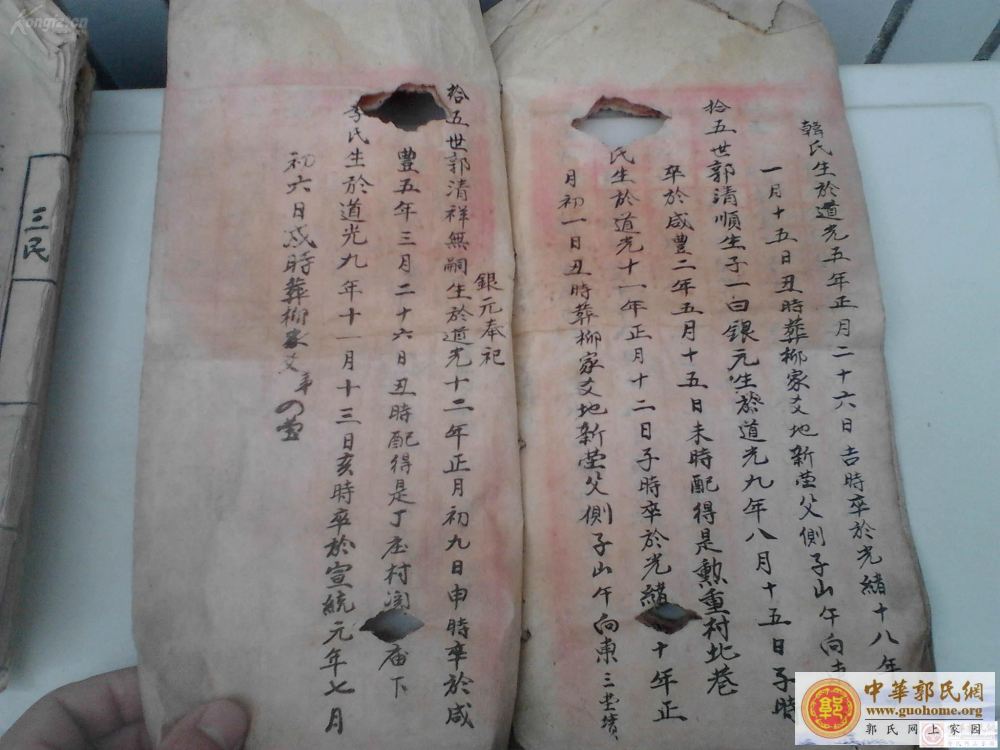 韓氏生於道光五年正月二十六日吉時卒於光緒十八年
一月十五日丑時葬柳家爻地新塋父側子山午向
拾五世郭清順生子一曰銀元生於道光九年八月十五日子時
卒於咸豐二年五月十五日未時配得是勲重村北巷
氏生於道光十一年正月十二日子時卒於光緒十年正
月初一日丑時葬柳家爻地新塋父側子山午向東三塋
銀元奉祀
拾五世郭清祥無嗣生於道光十二年正月初九日申時卒於咸
豐五年三月二十六日丑時配得是丁庄村閆庙下
李氏生於道光九年十一月十三日亥時卒於宣統元年七月
初六日戌時葬柳家爻
三民
Kongfz.cn
中華郭氏網
www.guohome.org
郭氏网上家园
郭